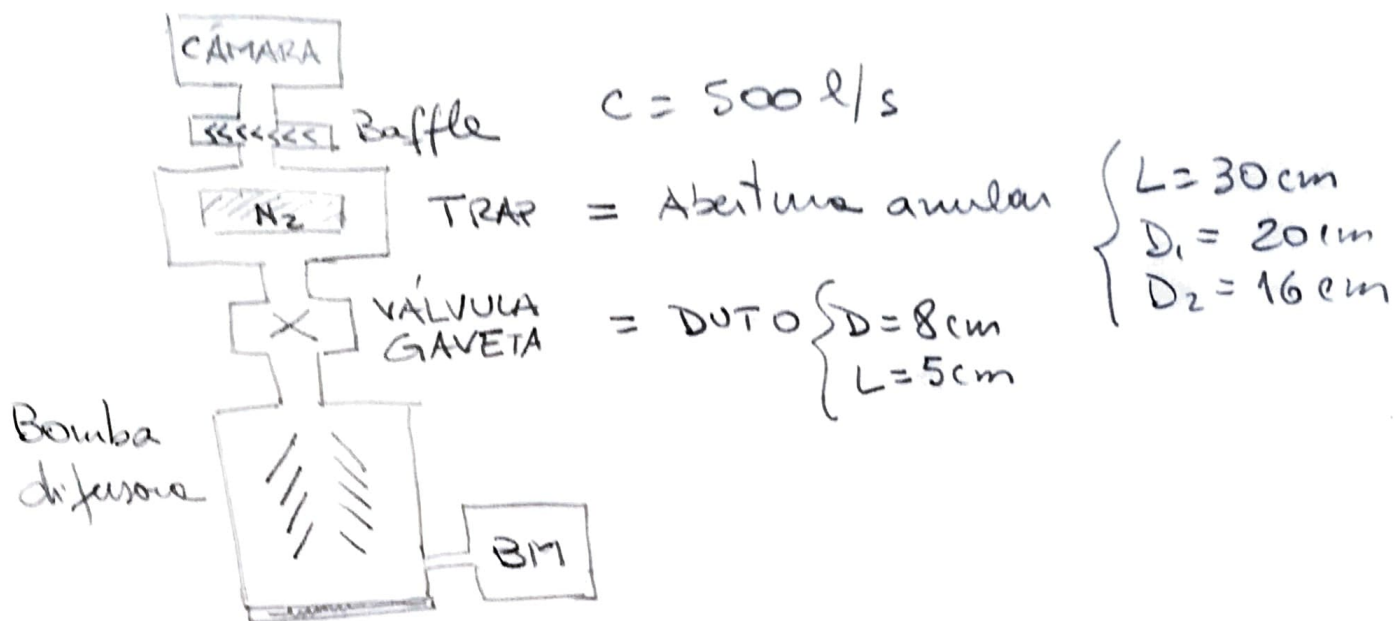 CÂMARA
Baffle
C = 500 l/s
N₂
TRAP = Abertura anular { L = 30 cm
D₁ = 20 cm
D₂ = 16 cm
VÁLVULA
GAVETA
= DUTO { D = 8 cm
L = 5 cm
Bomba
difusora
BM